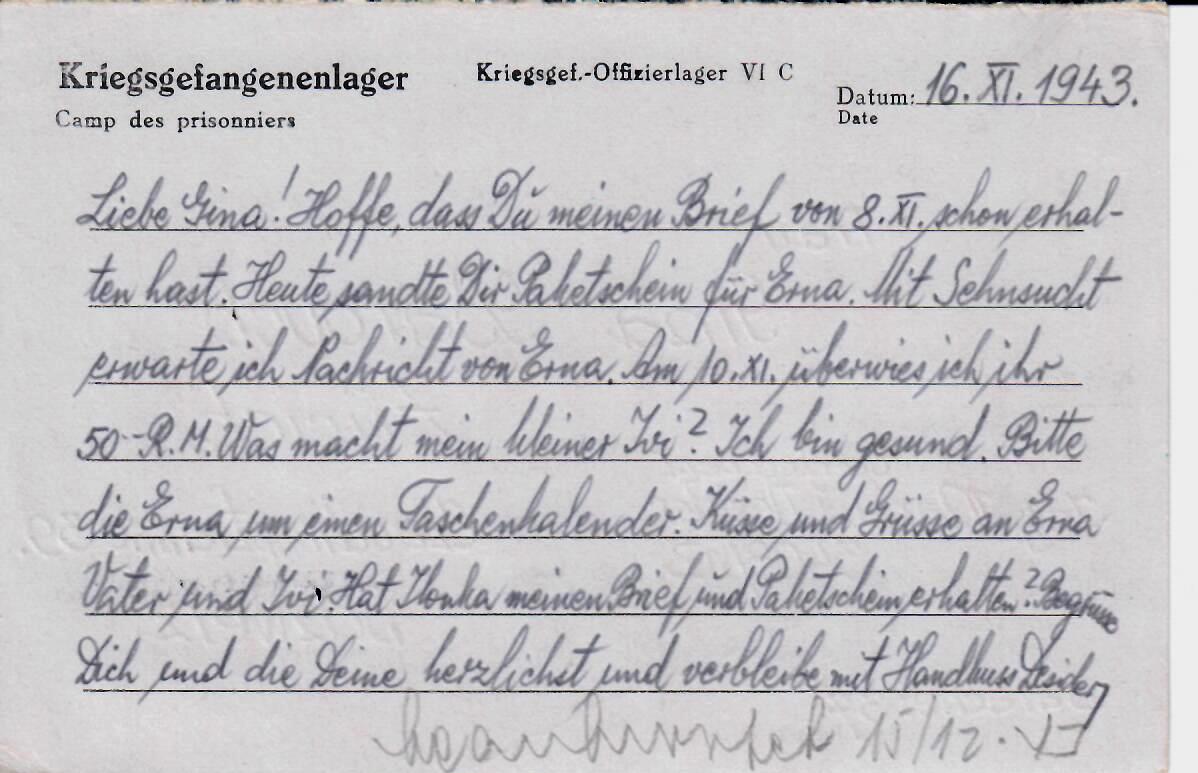 Kriegsgefangenenlager
Kriegsgef.-Offizierlager VI C
Camp des prisonniers
Datum: 16. XI. 1943.
Date
Liebe Gina! Hoffe, dass Du meinen Brief von 8. XI. schon erhal-
ten hast. Heute sandte Dir Paketschein für Erna. Mit Sehnsucht
erwarte ich Nachricht von Erna. Am 10. XI. überwies ich ihr
50-R.M. Was macht mein kleiner Ivi? Ich bin gesund. Bitte
die Erna um einen Taschenkalender. Küsse und Grüsse an Erna
Vater und Ivi. Hat Ilonka meinen Brief und Paketschein erhalten? Begrüsse
Dich und die Deine herzlichst und verbleibe mit Handkuss Desider
15/12.